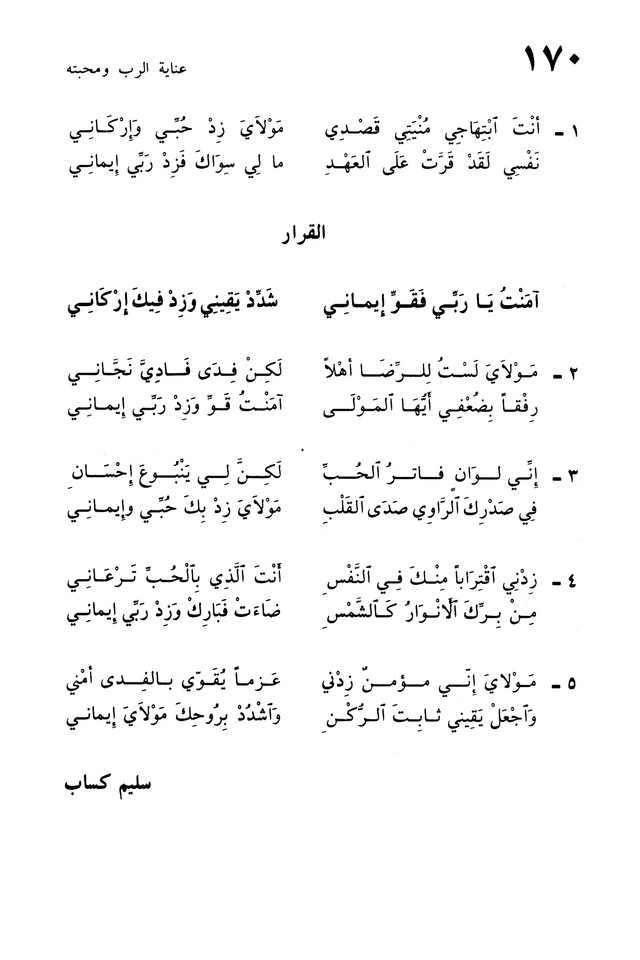 ١٧٠ عناية الرب ومحبته
١ ـ أنْتَ ٱبْتِهَاجِي مُنْيَتِي قَصْدِي مَوْلاَيَ زِدْ حُبِّي وَإِرْكَانِي
نَفْسِي لَقَدْ قَرَّتْ عَلَى ٱلعَهْدِ ما لِي سِوَاكَ فَزِدْ رَبِّي إيمانِي
القرار
آمَنْتُ يَا رَبِّي فَقَوِّ إيمانِي شَدِّدْ يَقِينِي وَزِدْ فِيكَ إرْكَانِي
٢ ـ مَوْلاَيَ لَسْتُ لِلرِّضَا أهْلاً لَكِنْ فِدَى فَادِيَّ نَجَّانِي
رِفْقاً بِضُعْفِي أَيُّهَا ٱلمَوْلَى آمَنْتُ قَوِّ وَزِدْ رَبِّي إيمانِي
٣ ـ إنِّي لَوانٍ فَاتِرُ ٱلحُبِّ لَكِنَّ لِي يَنْبُوعَ إحْسَانِ
فِي صَدْرِكَ ٱلرَّاوِي صَدَى ٱلقَلْبِ مَوْلاَيَ زِدْ بِكَ حُبِّي وإيمانِي
٤ ـ زِدْنِي ٱقْتِرَاباً مِنْكَ فِي ٱلنَّفْسِ أَنْتَ ٱلَّذِي بِٱلْحُبِّ تَرْعَانِي
مِنْ بِرِّكَ ٱلأنْوَارُ كَٱلشَّمْسِ ضَاءَتْ فَبَارِكْ وَزِدْ رَبِّي إيمانِي
٥ ـ مَوْلاَيَ إنِّي مؤمنٌ زِدْنِي عَزماً يُقَوِّي بالفِدى أمْنِي
وَٱجْعَلْ يَقِينِي ثابتَ ٱلرُّكْنِ وَٱشْدُدْ بِرُوحِكَ مَوْلاَيَ إيمانِي
سليم كساب